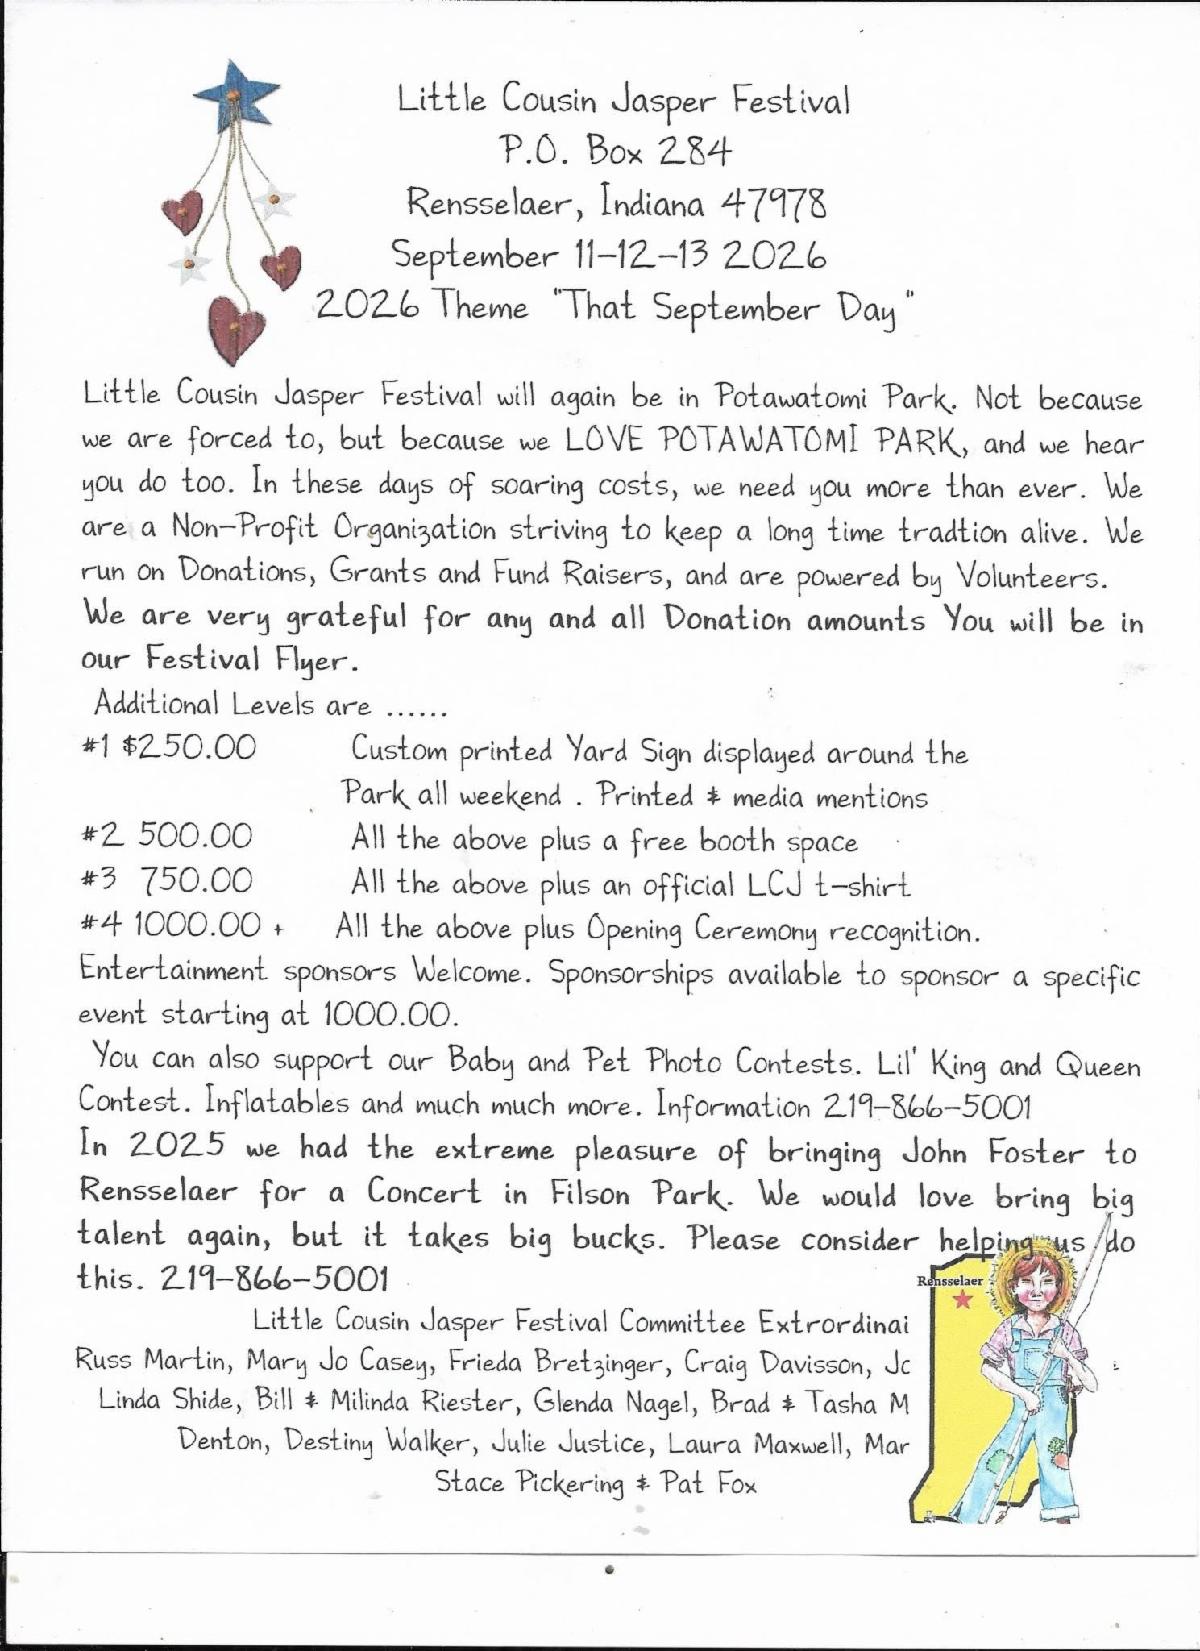 Little Cousin Jasper Festival
P.O. Box 284
Rensselaer, Indiana 47978
September 11-12-13 2026
2026 Theme "That September Day"
Little Cousin Jasper Festival will again be in Potawatomi Park. Not because
we are forced to, but because we LOVE POTAWATOMI PARK, and we hear
you do too. In these days of soaring costs, we need you more than ever. We
are a Non-Profit Organization striving to keep a long time tradtion alive. We
run on Donations, Grants and Fund Raisers, and are powered by Volunteers.
We are very grateful for any and all Donation amounts You will be in
our Festival Flyer.
Additional Levels are ......
#1 $250.00 Custom printed Yard Sign displayed around the
Park all weekend . Printed & media mentions
#2 500.00 All the above plus a free booth space
#3 750.00 All the above plus an official LCJ t-shirt
#4 1000.00 + All the above plus Opening Ceremony recognition.
Entertainment sponsors Welcome. Sponsorships available to sponsor a specific
event starting at 1000.00.
You can also support our Baby and Pet Photo Contests. Lil' King and Queen
Contest. Inflatables and much much more. Information 219-866-5001
In 2025 we had the extreme pleasure of bringing John Foster to
Rensselaer for a Concert in Filson Park. We would love bring big
talent again, but it takes big bucks. Please consider helping us do
this. 219-866-5001
Rensselaer
Little Cousin Jasper Festival Committee Extrordinai
Russ Martin, Mary Jo Casey, Frieda Bretzinger, Craig Davisson,
Linda Shide, Bill & Milinda Riester, Glenda Nagel, Brad & Tasha M
Denton, Destiny Walker, Julie Justice, Laura Maxwell, Mar
Stace Pickering & Pat Fox